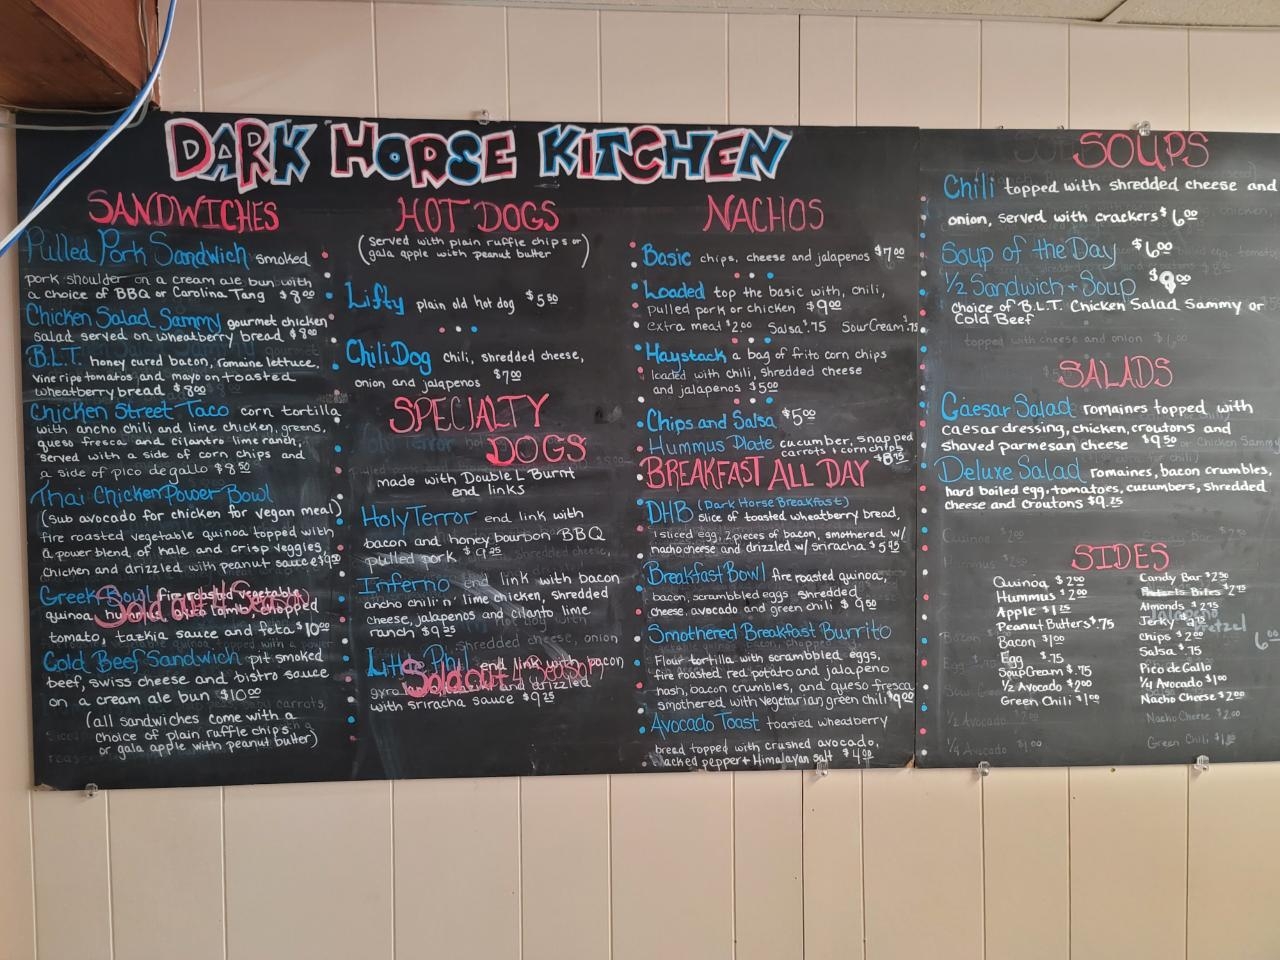 DARK HORSE KITCHEN
SANDWICHES
Pulled Pork Sandwich smoked
pork shoulder on a cream ale bun with
a choice of BBQ or Carolina Tang $8.00
Chicken Salad Sammy gourmet chicken
salad served on wheatberry bread $8.00
B.L.T. honey cured bacon, romaine lettuce,
vine ripe tomatos and mayo on toasted
wheatberry bread $8.00
Chicken Street Taco corn tortilla
with ancho chili and lime chicken, greens,
queso fresca and cilantro lime ranch,
served with a side of corn chips and
a side of pico de gallo $8.50
Thai Chicken Power Bowl
(sub avocado for chicken for vegan meal)
fire roasted vegetable quinoa topped with
a power blend of kale and crisp veggies,
chicken and drizzled with peanut sauce $9.50
Greek Bowl fire roasted vegetable
Sold out 4 Season
quinoa, hummus, gyro lamb, chopped
tomato, tazkia sauce and feta $10.00
Cold Beef Sandwich pit smoked
beef, swiss cheese and bistro sauce
on a cream ale bun $10.00
(all sandwiches come with a
choice of plain ruffle chips
or gala apple with peanut butter)
HOT DOGS
(served with plain ruffle chips or
gala apple with peanut butter)
Lifty plain old hot dog $5.50
Chili Dog chili, shredded cheese,
onion and jalapenos $7.00
SPECIALTY
DOGS
made with Double L Burnt
end links
Holy Terror end link with
bacon and honey bourbon BBQ
pulled pork $9.25
Inferno end link with bacon
ancho chili n' lime chicken, shredded
cheese, jalapenos and cilanto lime
ranch $9.25
Little Phil end link with bacon
Sold out 4 Season
gyro and drizzled
with sriracha sauce $9.25
NACHOS
Basic chips, cheese and jalapenos $7.00
Loaded top the basic with, chili,
pulled pork or chicken $9.00
extra meat $2.00 Salsa $.75 Sour Cream $.75
Haystack a bag of frito corn chips
loaded with chili, shredded cheese
and jalapenos $5.00
Chips and Salsa $5.00
Hummus Plate cucumber, snapped
carrots + corn chips
$8.75
BREAKFAST ALL DAY
DHB (Dark Horse Breakfast)
slice of toasted wheatberry bread,
1 sliced egg, 2 pieces of bacon, smothered w/
nacho cheese and drizzled w/ sriracha $5.95
Breakfast Bowl fire roasted quinoa,
bacon, scrambbled eggs shredded
cheese, avocado and green chili $9.50
Smothered Breakfast Burrito
Flour tortilla with scrambbled eggs,
fire roasted red potato and jalapeno
hash, bacon crumbles, and queso fresca
smothered with vegetarian green chili $9.00
Avocado Toast toasted wheatberry
bread topped with crushed avocado,
cracked pepper + Himalayan salt $4.00
SOUPS
Chili topped with shredded cheese and
onion, served with crackers $6.00
Soup of the Day $6.00
1/2 Sandwich + Soup $9.00
choice of B.L.T. Chicken Salad Sammy or
Cold Beef
SALADS
Caesar Salad romaines topped with
caesar dressing, chicken, croutons and
shaved parmesan cheese $9.50
Deluxe Salad romaines, bacon crumbles,
hard boiled egg, tomatoes, cucumbers, shredded
cheese and croutons $9.25
SIDES
Quinoa $2.00
Hummus $2.00
Apple $1.25
Peanut Butter $.75
Bacon $1.00
Egg $.75
Sour Cream $.75
1/2 Avocado $2.00
Green Chili $1.00
Candy Bar $2.50
Pretzels Bites $2.75
Almonds $2.75
Jerky
Chips $2.00
Salsa $.75
Pico de Gallo
1/4 Avocado $1.00
Nacho Cheese $2.00
Pretzel
6.00
Nacho Cheese $2.00
Green Chili
1/2 Avocado $2.00
1/4 Avocado $1.00